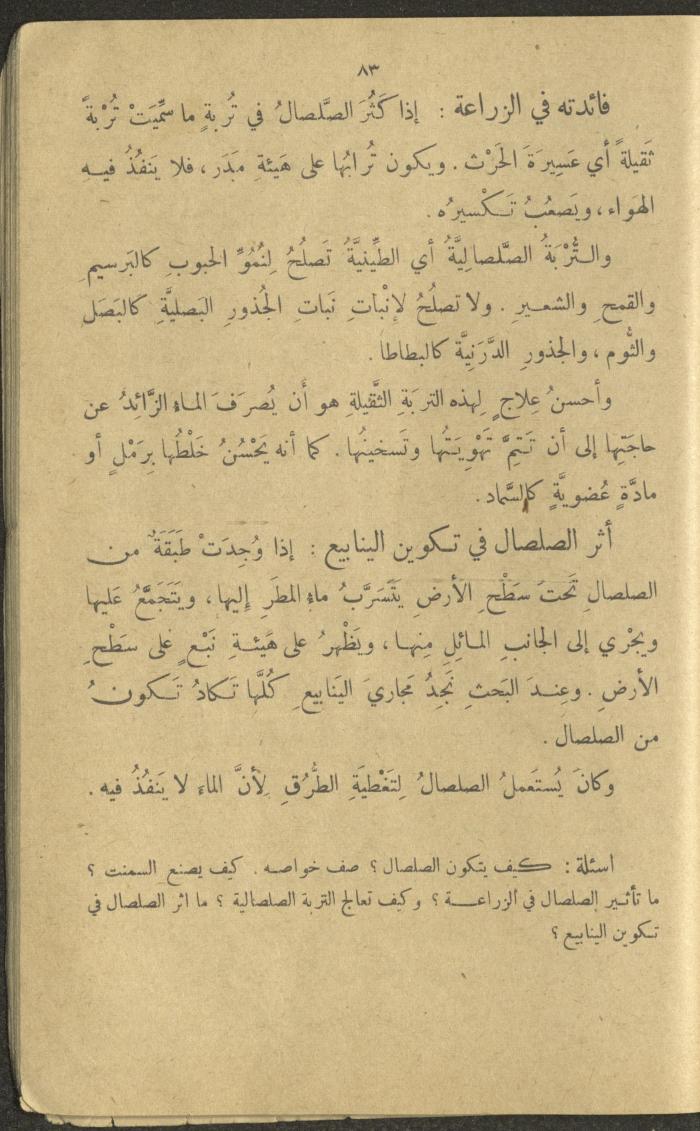 ٨٣
فائدته في الزراعة : إذا كَثُرَ الصَّلصالُ في تُربةٍ ما سمِّيَتْ تُرْبةً
ثَقيلةً أي عَسِيرَةَ الحَرْث . ويكون تُرابُها على هَيئةِ مَدَر ، فلا يَنفُذُ فيه
الهَواء ، ويَصعُبُ تَكْسيرُه .
والتُّرْبَةُ الصَّلصالِيَّةُ أي الطِّينيَّةُ تَصلُحُ لِنُمُوِّ الحبوبِ كالبَرسيمِ
والقمحِ والشعيرِ . ولا تصلُحُ لاِنْباتِ نَباتِ الجُذورِ البَصليَّةِ كالبَصَل
والثُّوم ، والجذورِ الدَّرَنِيَّة كالبطاطا .
وأحسنُ عِلاجٍ لِهذه التربَةِ الثَّقيلةِ هو أن يُصرَفَ الماءُ الزَّائدُ عن
حاجَتِها إلى أن تَتِمَّ تَهْوِيَتُها وتَسخينُها . كما أنه يَحْسُنُ خَلْطُها بِرَمْلٍ أو
مادَّةٍ عُضويَّةٍ كالسَّماد .
أثر الصلصال في تكوين الينابيع : إذا وُجِدَتْ طَبَقَةٌ من
الصلصالِ تَحتَ سَطْحِ الأرضِ يَتَسَرَّبُ ماءُ المطَرِ إِليها ، ويَتَجَمَّعُ عَليها
ويجْري إلى الجانبِ المائلِ مِنها ، ويَظْهرُ على هَيئةِ نَبْعٍ على سَطْحِ
الأرضِ . وعِندَ البَحثِ نَجِدُ مَجاريَ اليَنابيعِ كُلَّها تَكادُ تَكونُ
من الصلصال .
وكانَ يُستَعملُ الصلصالُ لِتَغْطيَةِ الطُّرُقِ لِأَنَّ الماءَ لا يَنفُذُ فيه .
اسئلة : كيف يتكون الصلصال ؟ صف خواصه . كيف يصنع السمنت ؟
ما تأثير الصلصال في الزراعة ؟ وكيف تعالج التربة الصلصالية ؟ ما اثر الصلصال في
تكوين الينابيع ؟